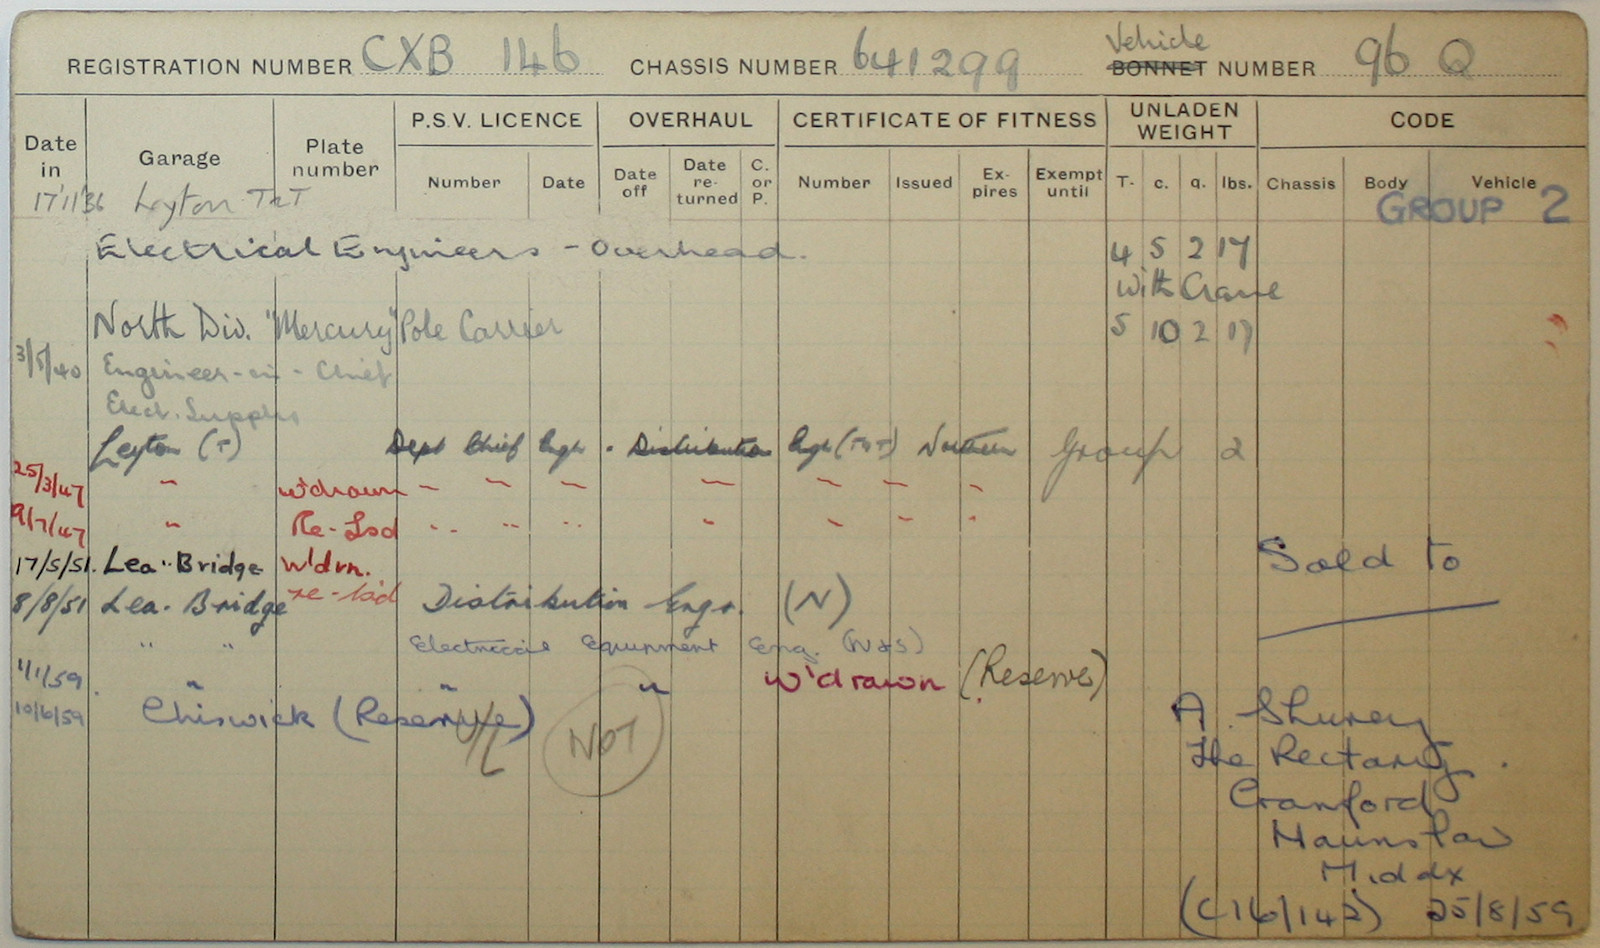 REGISTRATION NUMBER CXB 146 CHASSIS NUMBER 641299 Vehicle BONNET NUMBER 96 Q
Date in Garage Plate number P.S.V. LICENCE OVERHAUL CERTIFICATE OF FITNESS UNLADEN WEIGHT CODE
Number Date Date off Date re-turned C. or P. Number Issued Ex-pires Exempt until T. c. q. lbs. Chassis Body Vehicle
17/11/36 Leyton T&T GROUP 2
Electrical Engineers - Overhead. 4 5 2 17
With Crane
North Div. "Mercury" Pole Carrier 5 10 2 17
3/5/40 Engineer-in-Chief
Elect. Supplies
Leyton (T) Dept Chief Engr. Distribution Engr (T&T) Northern Group 2
25/3/47 " w'drawn " " " " " " "
9/7/47 " Re-Lsd " " " " " " "
17/5/51. Lea Bridge w'drn. Sold to
8/8/51 Lea. Bridge re-lsd Distribution Engr. (N)
" " Electrical Equipment Eng. (N&S)
1/1/59 " " " w'drawn (Reserve)
10/6/59 Chiswick (Reserve) U/L NOT
A. Shurey
The Rectory.
Cranford
Hounslow
Middx
(C16/142) 25/8/59